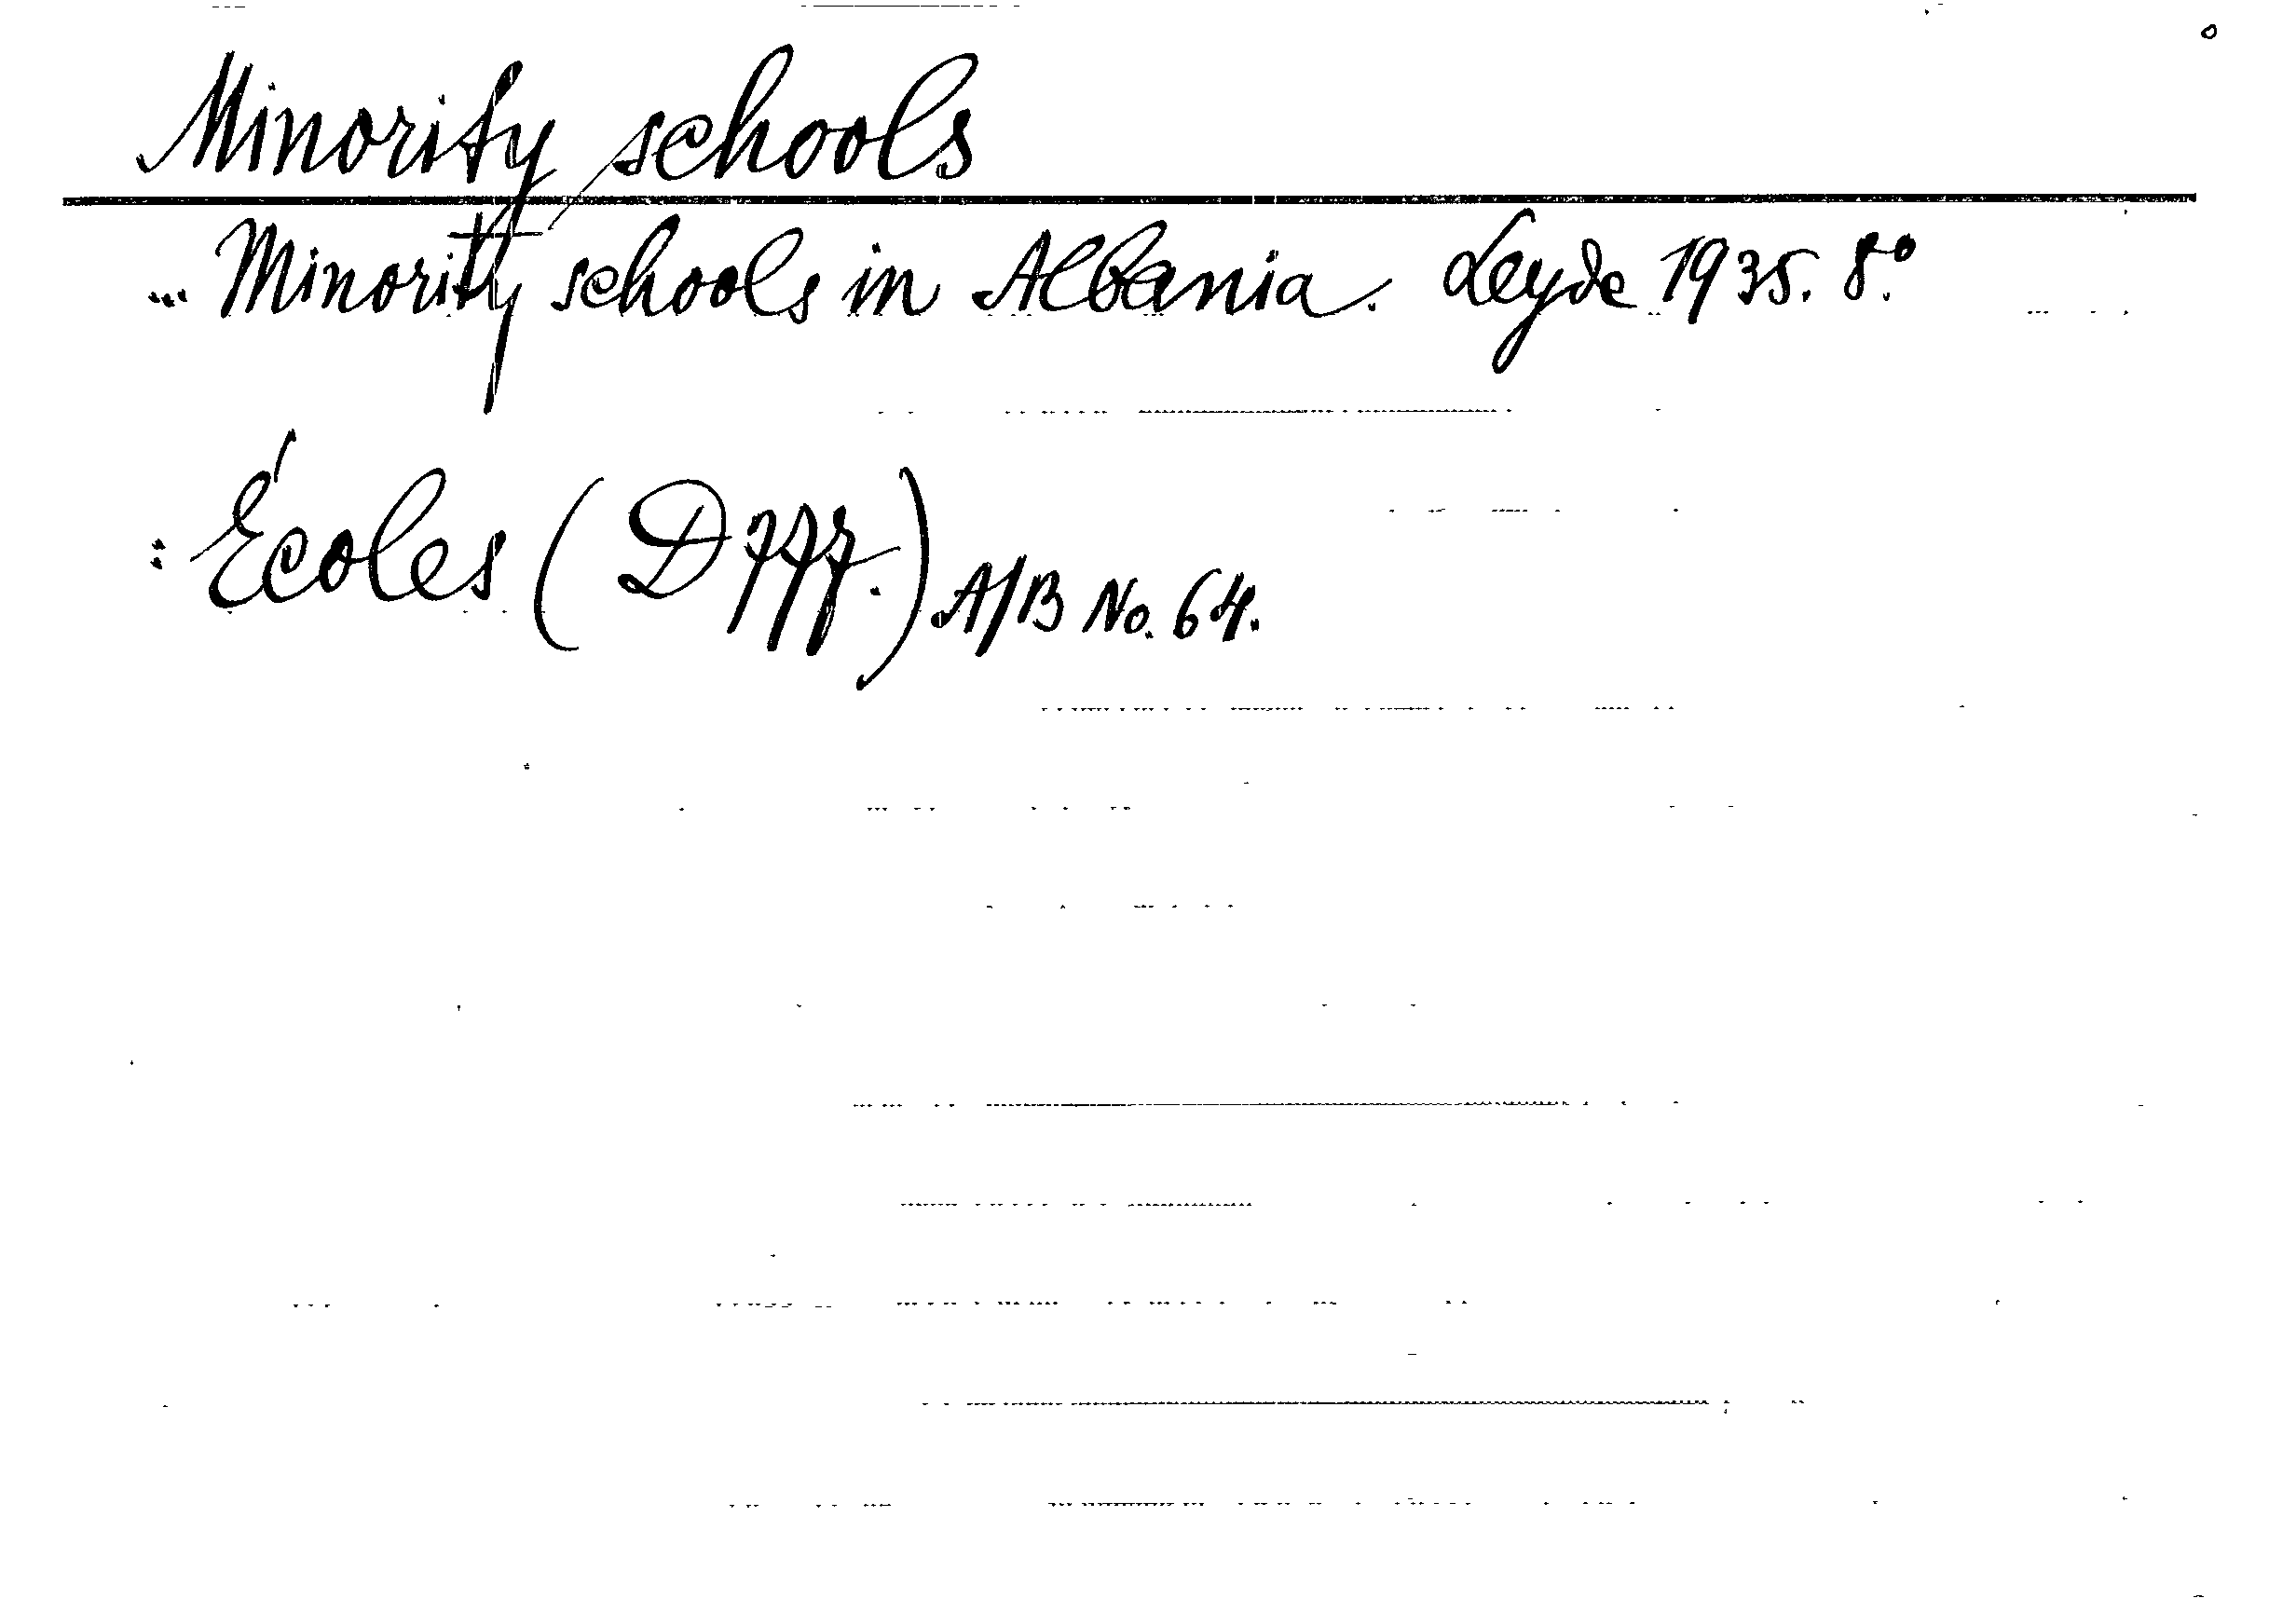 Minority schools
... Minority schools in Albania. Leyde 1935. 8.°
: Écoles ( D ) A/B No. 64.